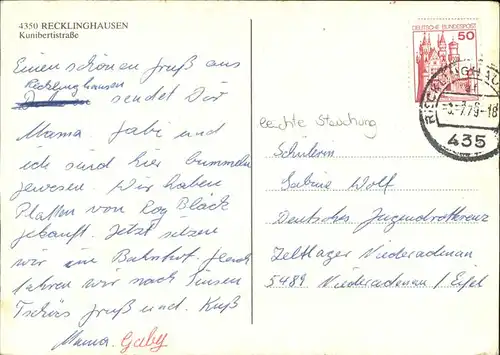 4350 RECKLINGHAUSEN
Kunibertistraße
Einen schönen Gruß aus
Recklinghausen
sendet Dir
Mama. Gabi und
ich sind hier bummeln
gewesen. Wir haben
Platten von Roy Black
gekauft. Jetzt sitzen
wir im Bahnhof. Gleich
fahren wir nach Sinsen
Tschös Gruß und. Kuß
Mama. Gaby
DEUTSCHE BUNDESPOST
50
RECKLINGHAU
-3.-7.79-18
435
leichte Stauchung
Schülerin
Sabine Wolf
Deutsches Jugendrotkreuz
Zeltlager Niederadenau
5489 Niederadenau / Eifel